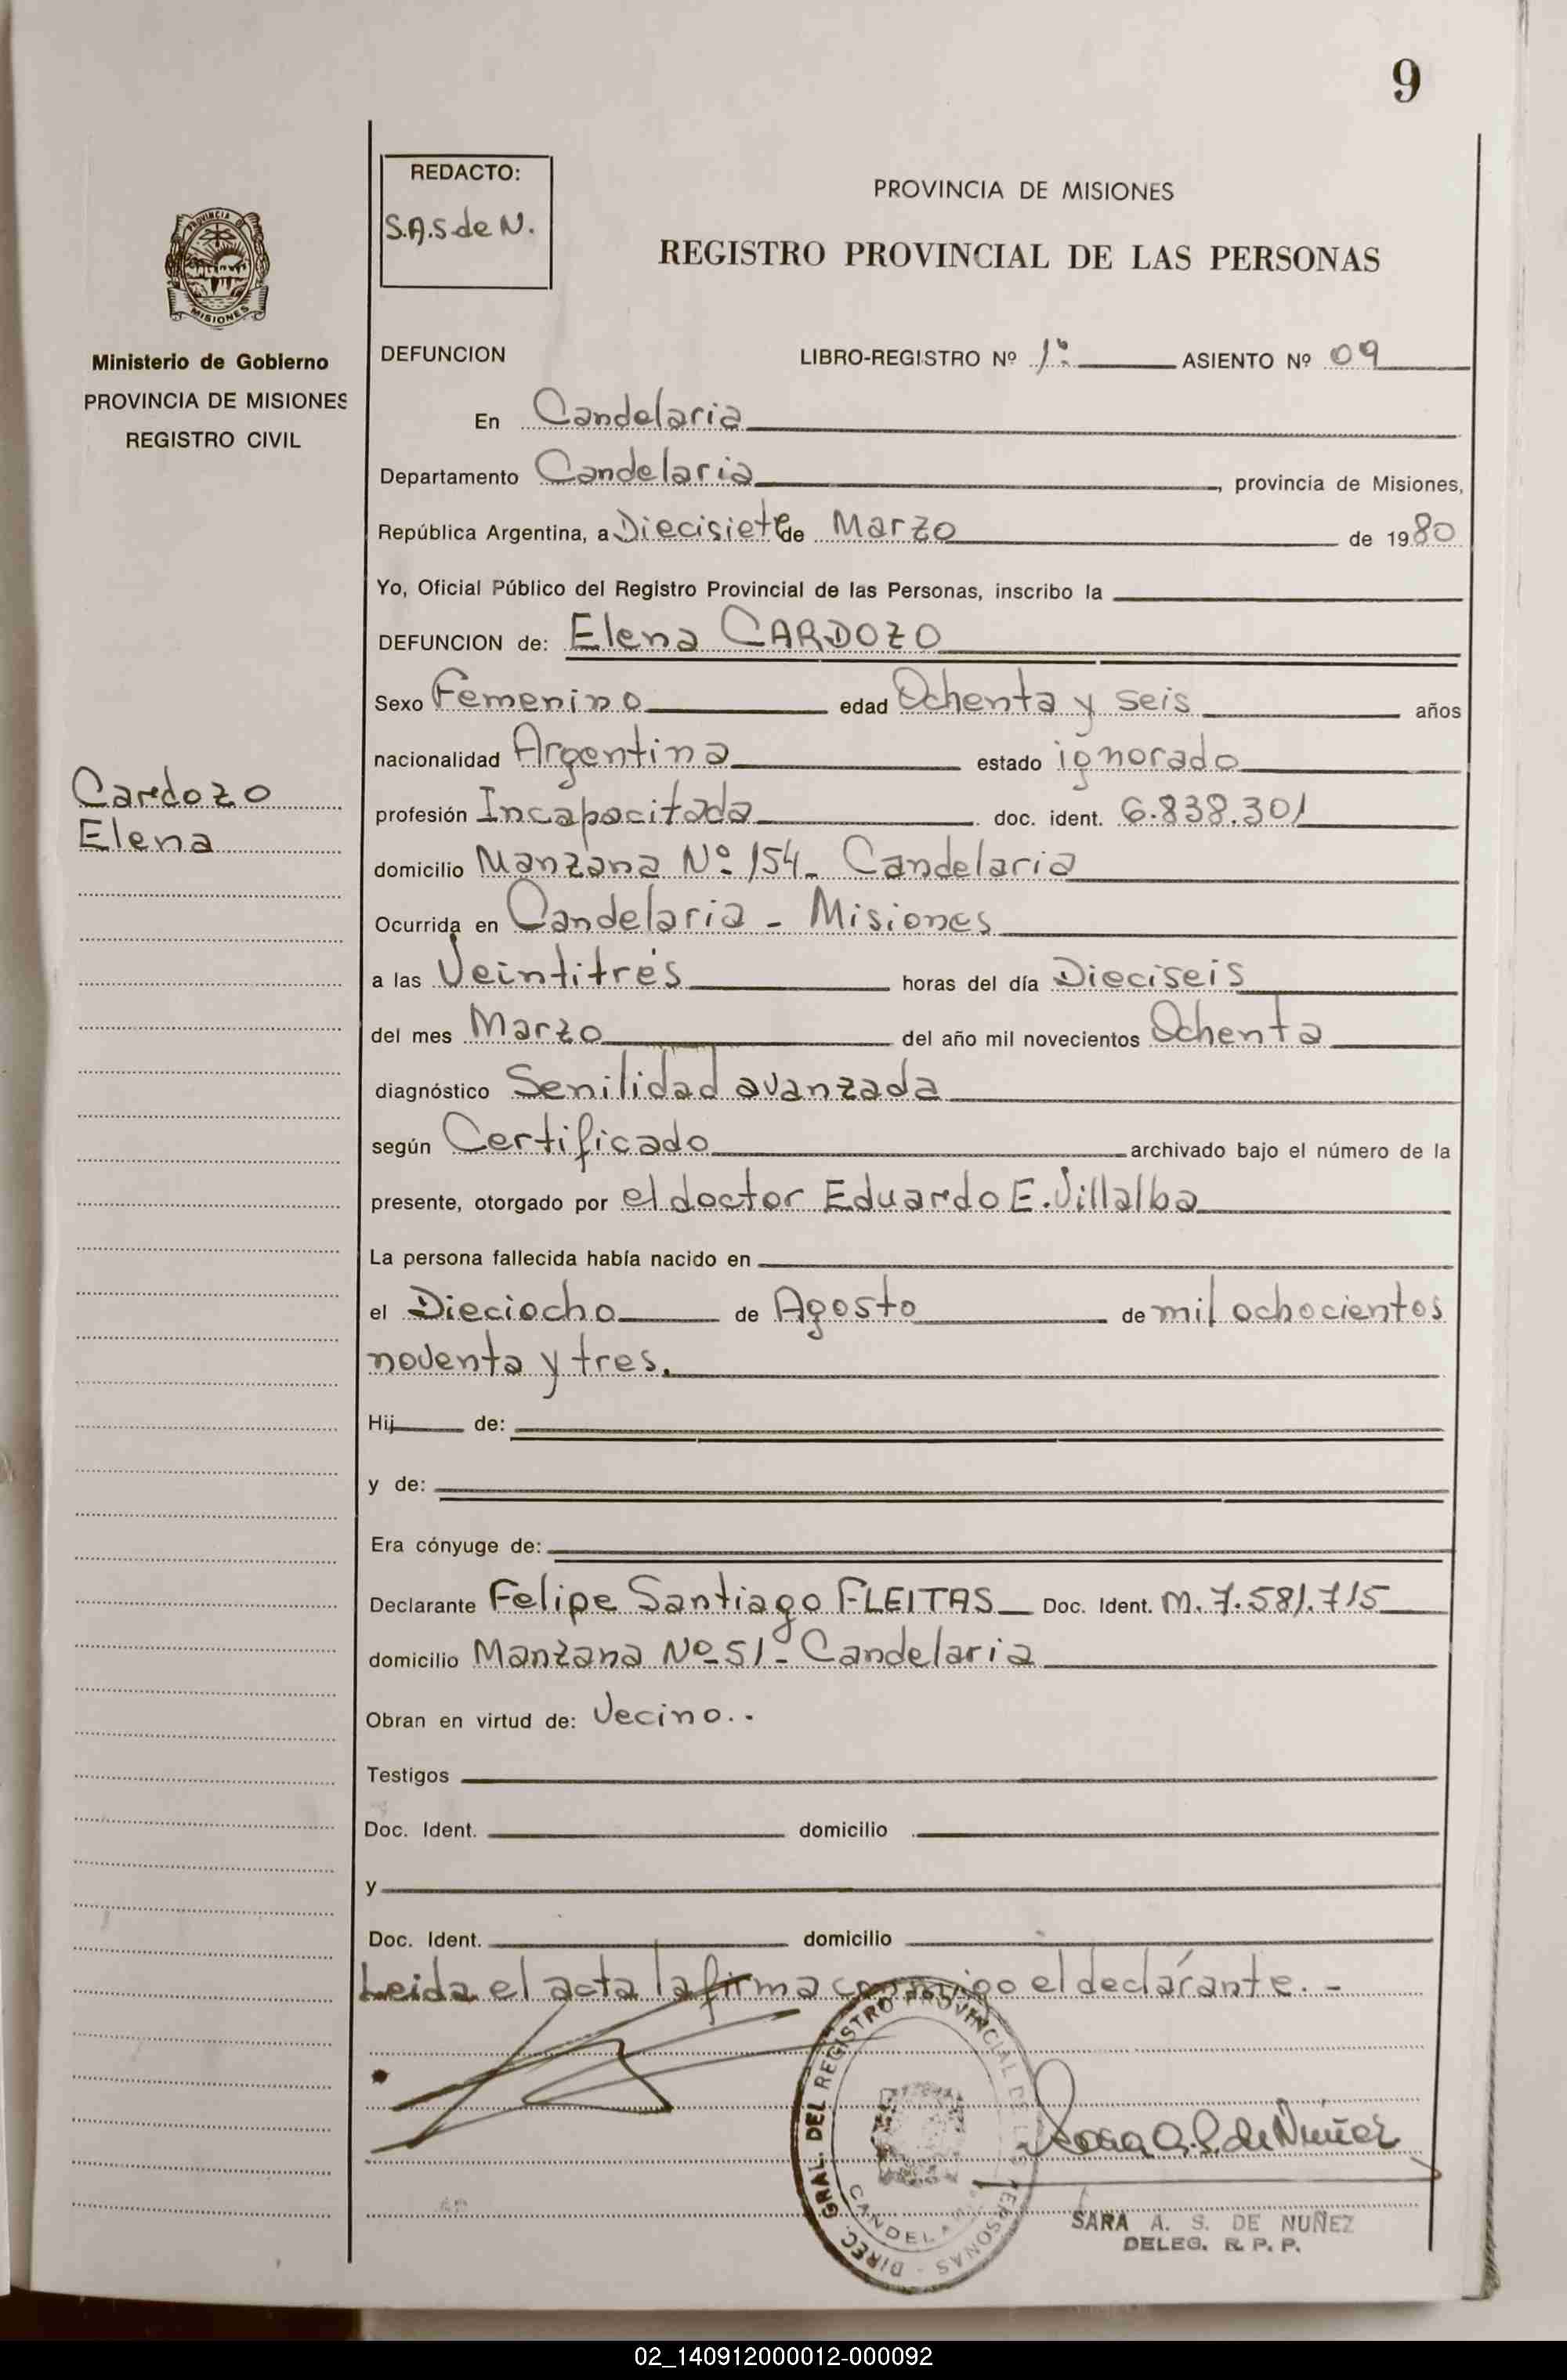 9
REDACTO:
S.A.S de N.
PROVINCIA DE MISIONES
REGISTRO PROVINCIAL DE LAS PERSONAS
PROVINCIA DE
MISIONES
Ministerio de Gobierno
PROVINCIA DE MISIONES
REGISTRO CIVIL
DEFUNCION LIBRO-REGISTRO Nº 1º ASIENTO Nº 09
En Candelaria
Departamento Candelaria, provincia de Misiones,
República Argentina, a Diecisiete de Marzo de 1980
Yo, Oficial Público del Registro Provincial de las Personas, inscribo la
DEFUNCION de: Elena CARDOZO
Sexo Femenino edad Ochenta y seis años
nacionalidad Argentina estado ignorado
Cardozo
Elena
profesión Incapacitada doc. ident. 6.838.301
domicilio Manzana Nº 154- Candelaria
Ocurrida en Candelaria - Misiones
a las Veintitrés horas del día Dieciseis
del mes Marzo del año mil novecientos Ochenta
diagnóstico Senilidad avanzada
según Certificado archivado bajo el número de la
presente, otorgado por el doctor Eduardo E. Villalba
La persona fallecida había nacido en
el Dieciocho de Agosto de mil ochocientos
noventa y tres.
Hij de:
y de:
Era cónyuge de:
Declarante Felipe Santiago FLEITAS Doc. Ident. M. 7.581.715
domicilio Manzana Nº 51- Candelaria
Obran en virtud de: Vecino..
Testigos
Doc. Ident. domicilio
y
Doc. Ident. domicilio
Leida el acta la firma conmigo el declárante.-
DIREC. GRAL. DEL REGISTRO PROVINCIAL DE LAS PERSONAS -
CANDELARIA
Sara A. S. de Nuñez
SARA A. S. DE NUÑEZ
DELEG. R. P. P.
02_140912000012-000092